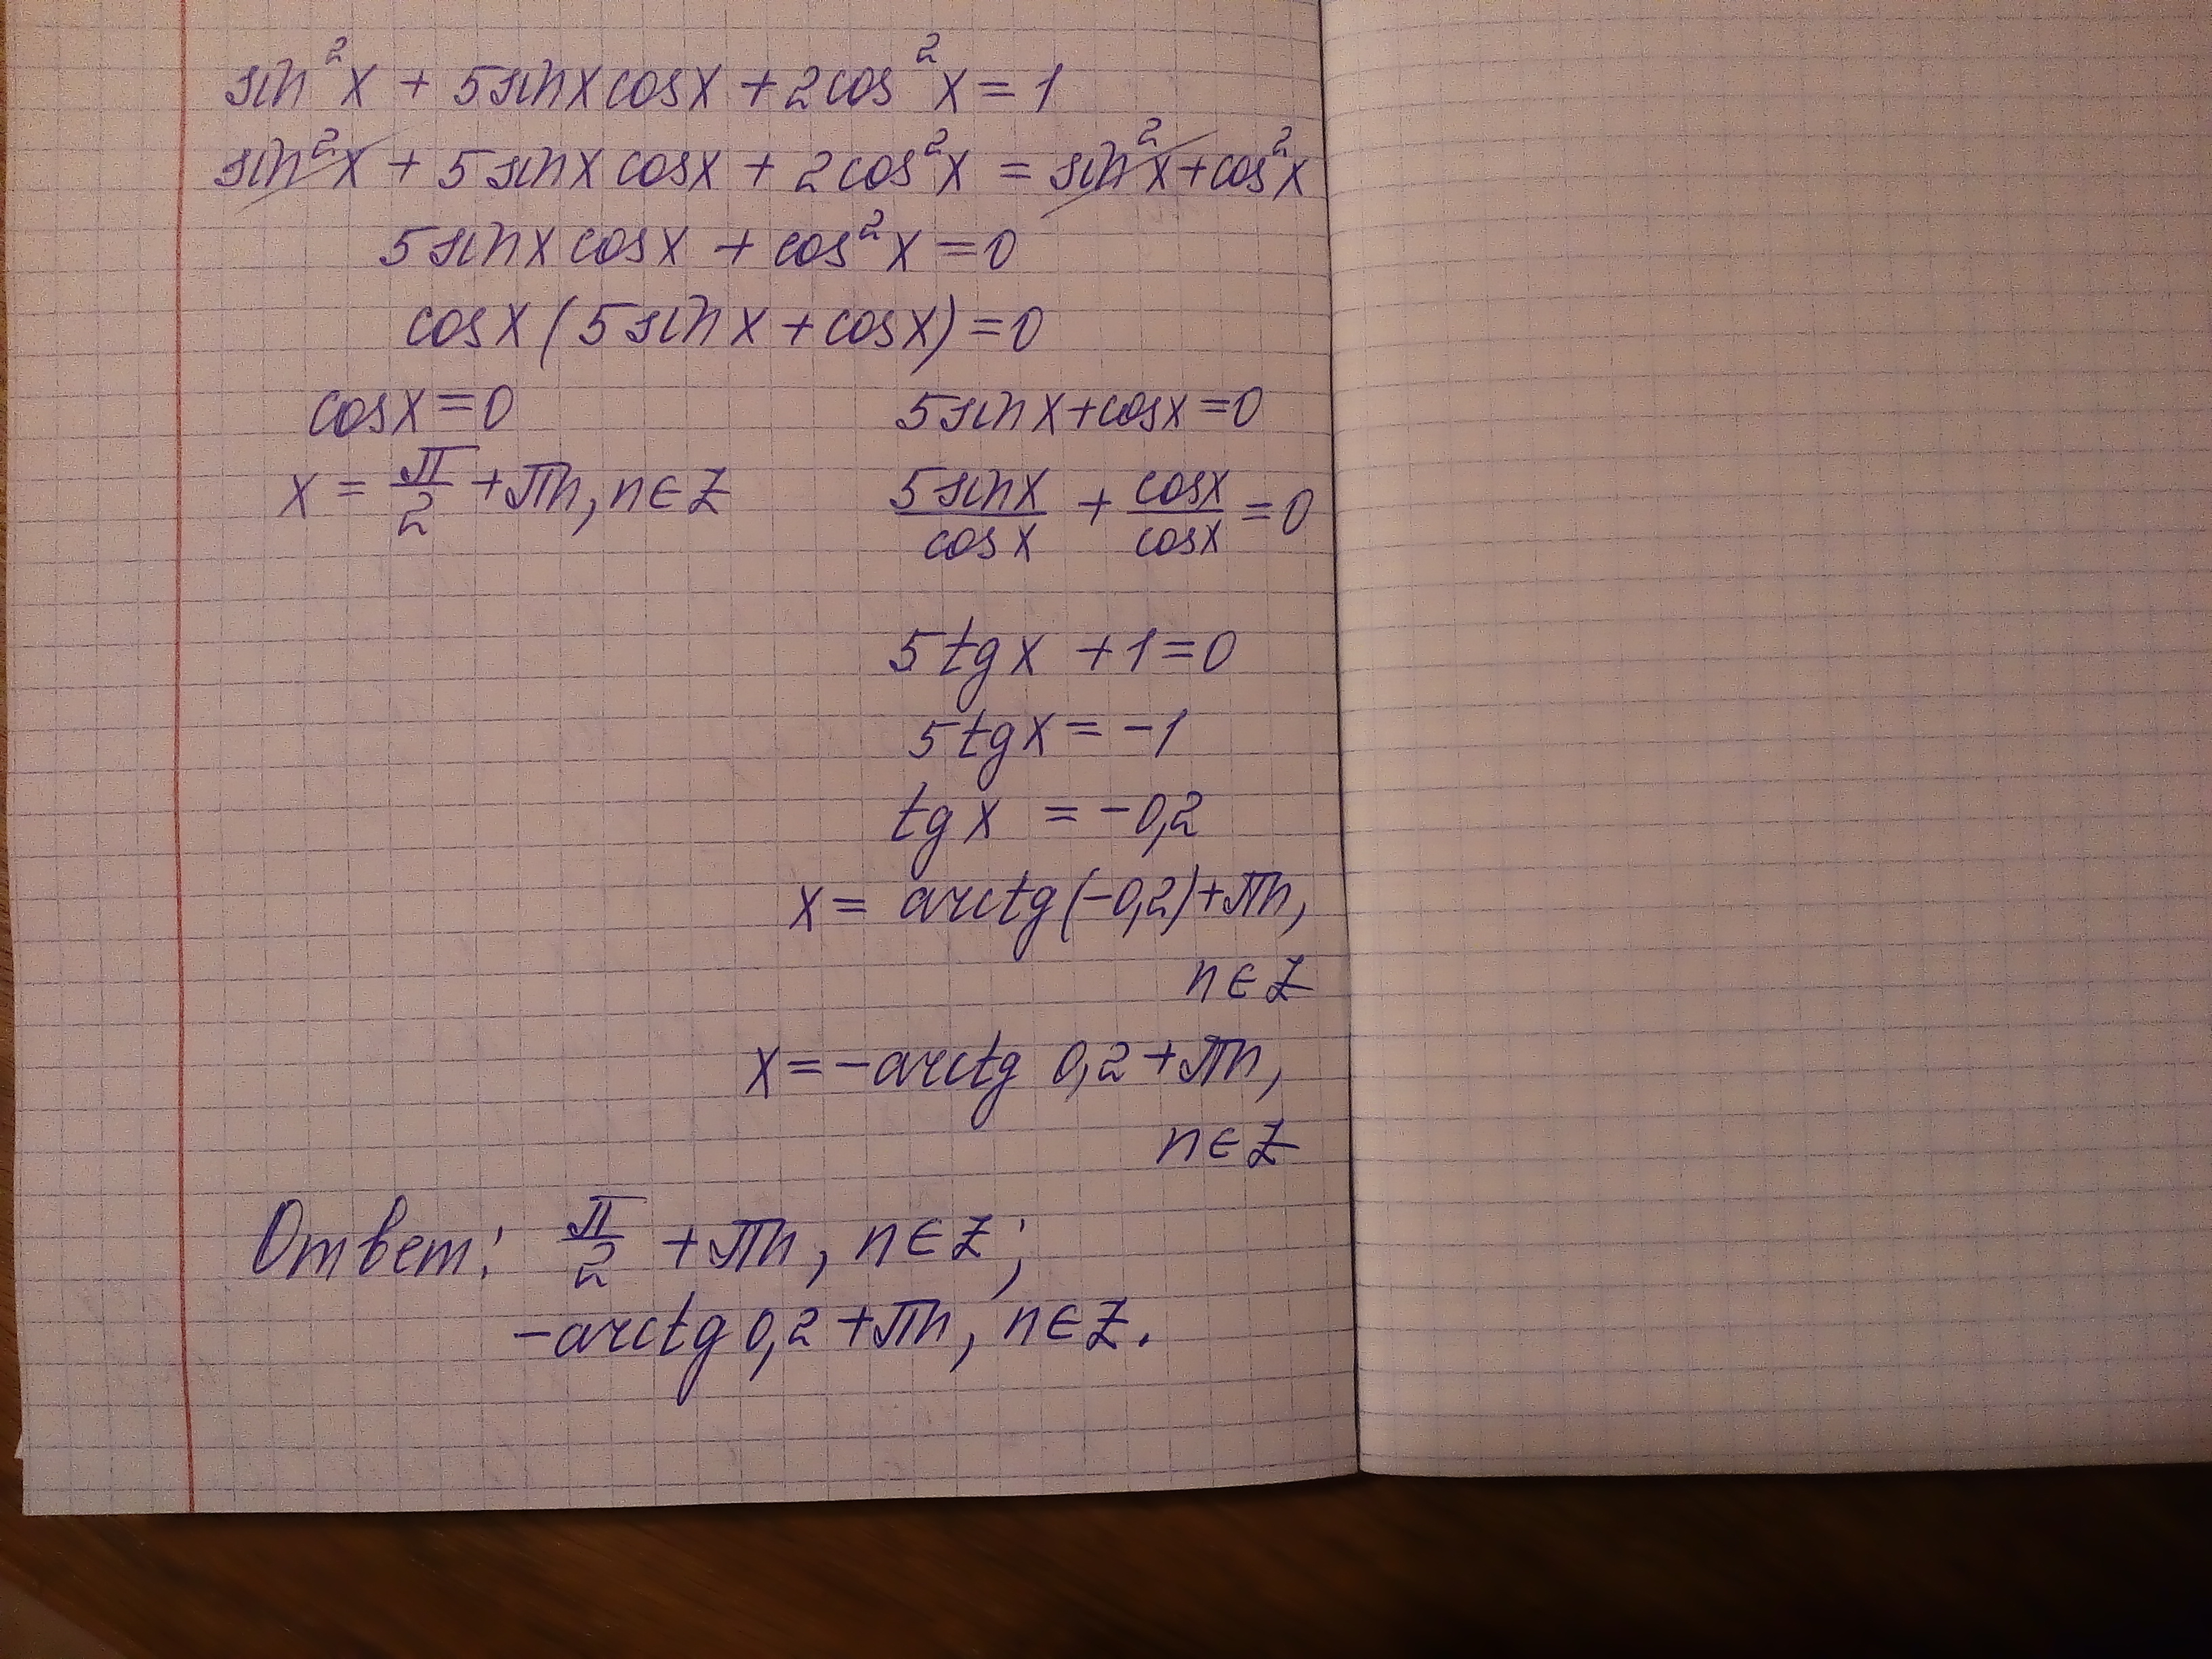 sin²x + 5sinx cosx + 2cos²x = 1
sin²x + 5sinx cosx + 2cos²x = sin²x + cos²x
5sinx cosx + cos²x = 0
cosx (5sinx + cosx) = 0
cosx = 0
x = π/2 + πn, n∈Z
5sinx + cosx = 0
5sinx/cosx + cosx/cosx = 0
5tgx + 1 = 0
5tgx = -1
tgx = -0,2
x = arctg(-0,2) + πn,
n∈Z
x = -arctg 0,2 + πn,
n∈Z
Ответ: π/2 + πn, n∈Z;
-arctg 0,2 + πn, n∈Z.